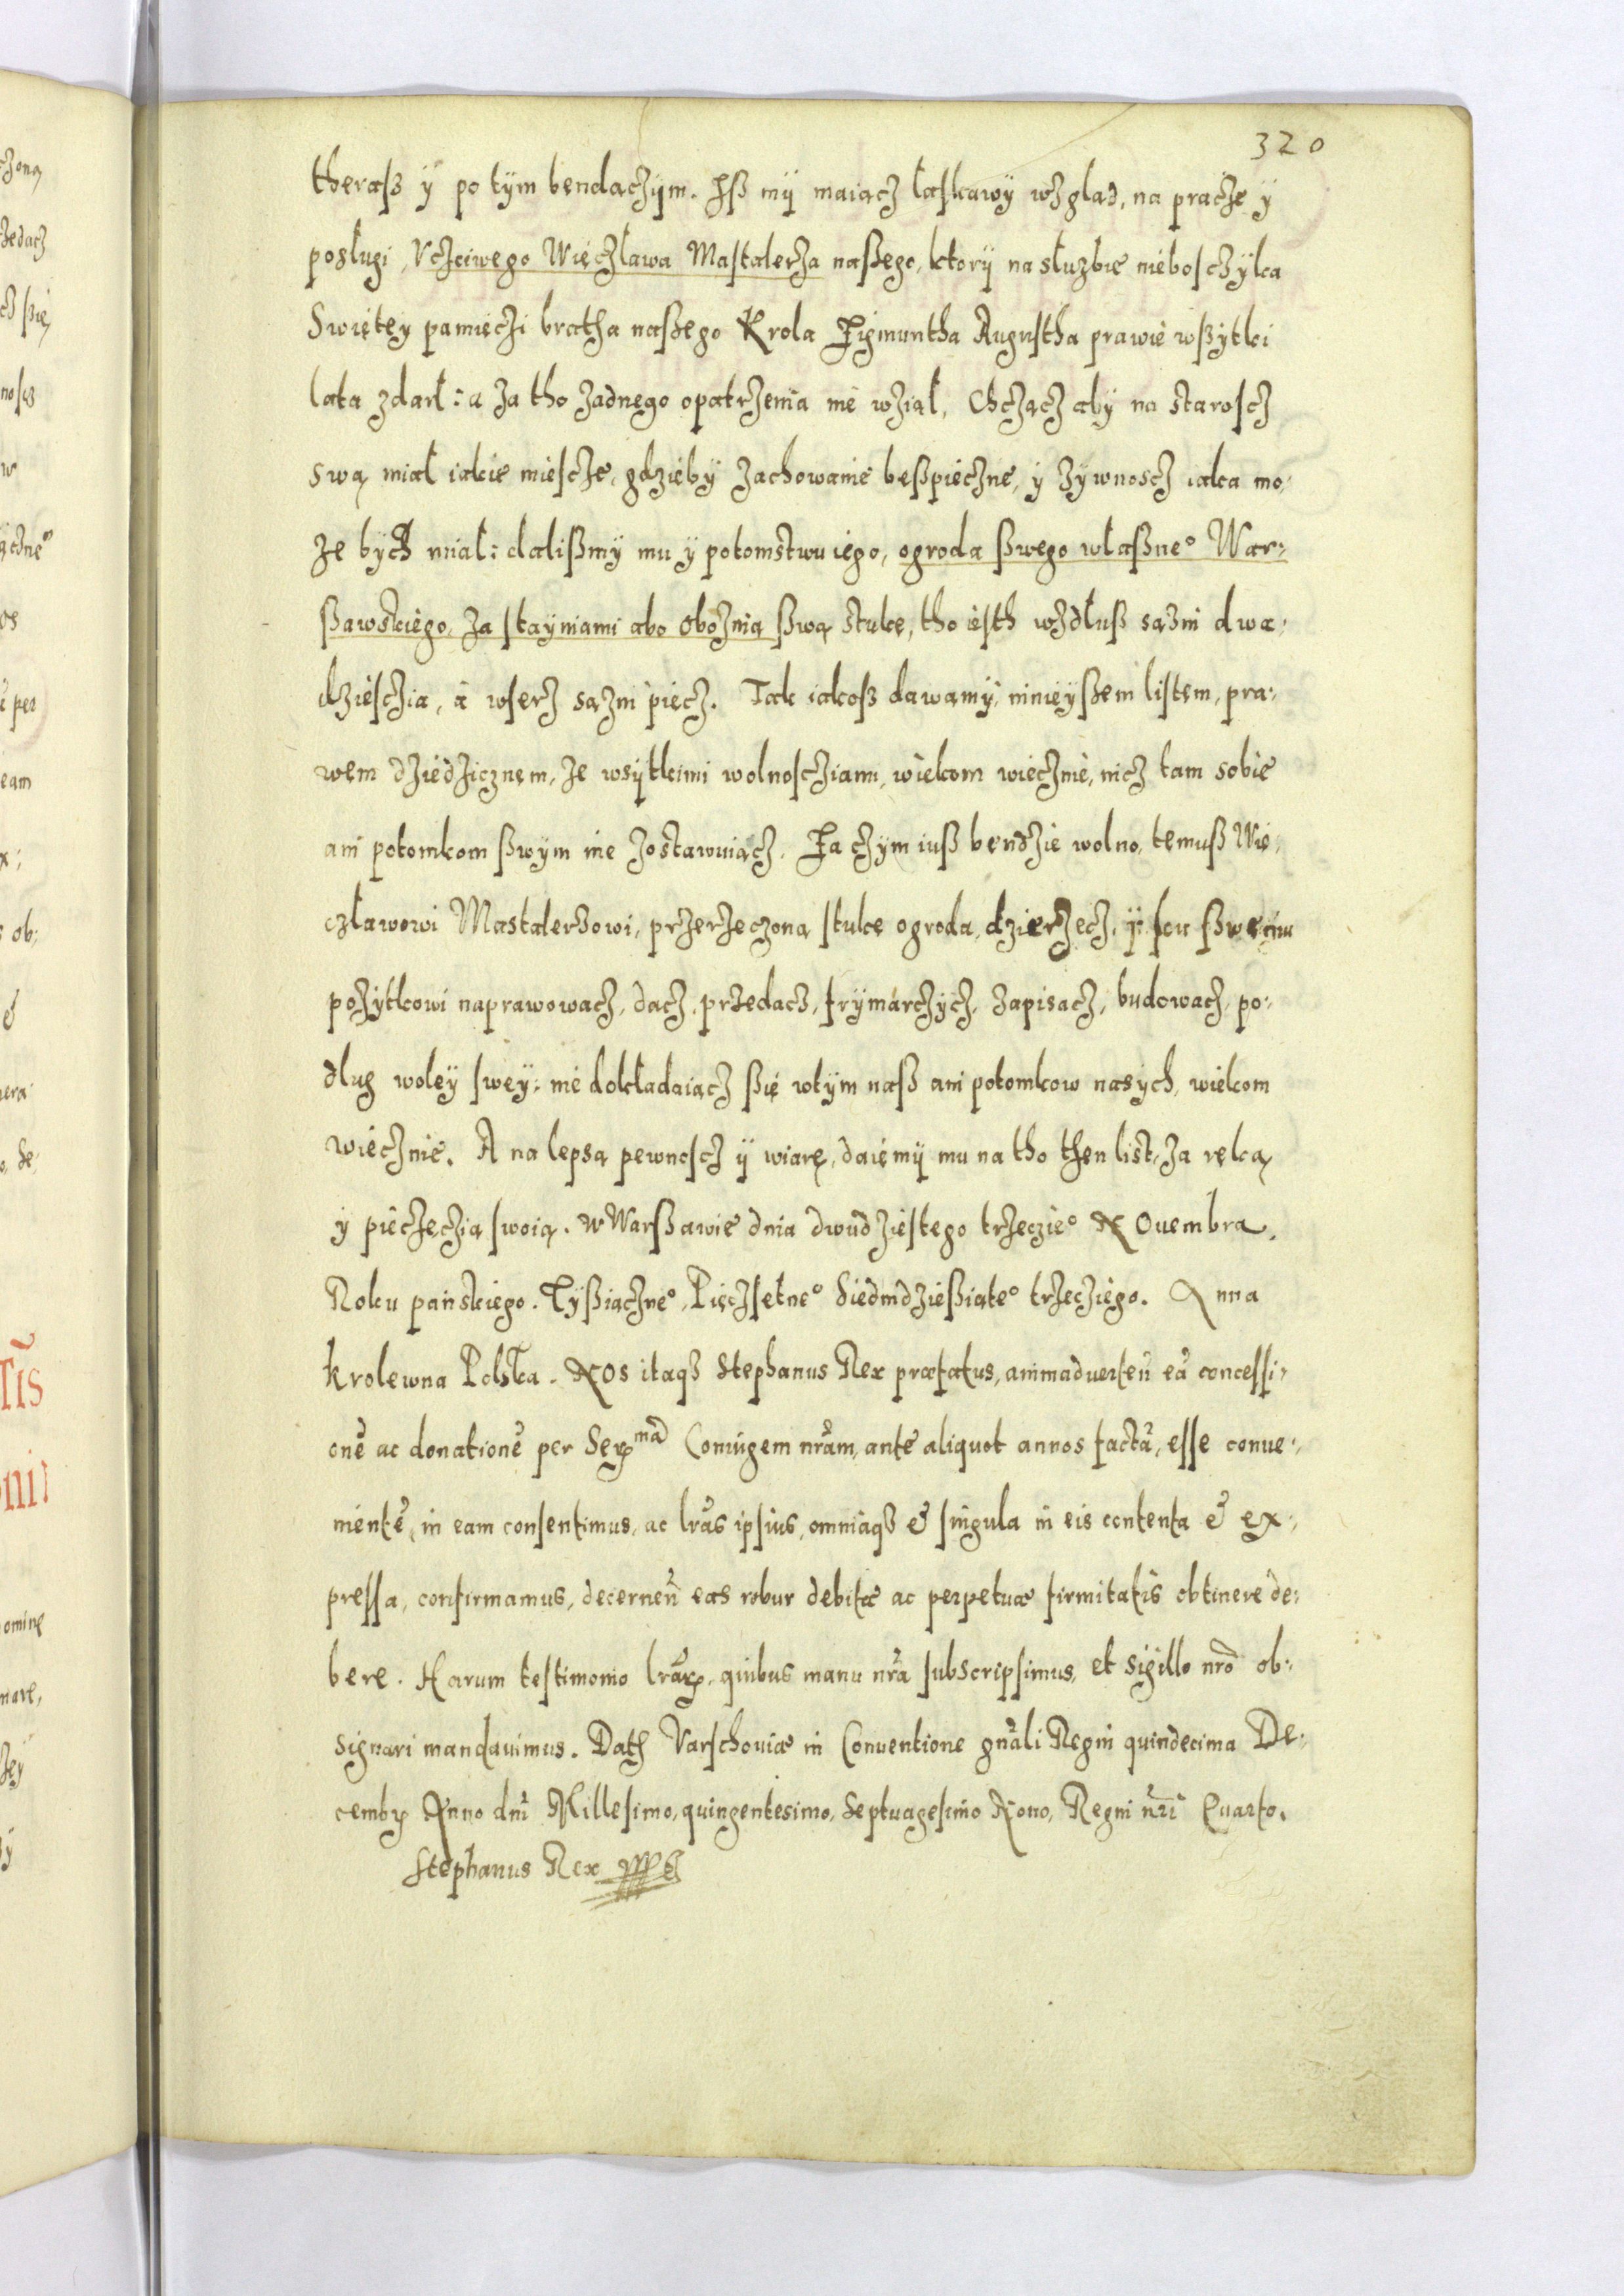 320
theraß ÿ po tÿm bendaczÿm. Iß mÿ maiącz łaskawÿ wzgląd, na pracze ÿ
posługi, Vczciwego Więczława Mastalerza naßego, ktorÿ na służbie nieboszczÿka
Swiętey pamięczi bratha naßego Krola Zigmuntha Augustha prawie wßÿtki
lata zdarł: a za tho żadnego opatrzenia nie wział, Chcząncz abÿ na staroscz
swą miał iakie miescze, gdziebÿ zachowanie beßpieczne, ÿ zÿwnoscz iaka mo:
ze bÿcz miał: dalißmÿ mu ÿ potomstwu iego, ogroda ßwego własne° War:
ßawskiego, za staÿniami abo oboznią ßwą stukę, tho iesth wzdłuß sążni dwa:
dziesczia, a wserz sążni piecz. Tak iakoß dawamÿ, ninieÿßem listem, pra:
wem dziedzicznem, ze wsÿtkimi wolnosciami, wiekom wiecznie, nicz tam sobie
ani potomkom ßwÿm nie zostawuiącz. Za czÿm iuß bendzie wolno temuß Wię:
czławowi Mastalerzowi, przerzeczoną stukę ogroda, dzierzecz, ÿ ku ßwemu
pozÿtkowi naprawowacz, dacz, przedacz, frÿmarczÿcz, zapisacz, budowacz, po:
dlug woleÿ sweÿ: nie dokładaiącz ßię wtÿm naß ani potomkow nasÿch, wiekom
wiecznie. A na lepsą pewnoscz ÿ wiarę, daiemÿ mu na tho then list, za ręką
ÿ pieczeczią swoią. w Warßawie dnia dwudziestego trzeczie° Nouembra.
Roku pańskiego. Tÿßiączne°, Pięczsetne° Siedmdzießiąte° trzecziego. Anna
krolewna Polska. Nos itaqз Stephanus Rex præfatus, animaduerteñ eã concessi:
onẽ ac donationẽ per Serᵐã Coniugem nrãm, ante aliquot annos factã, esse conue:
nientẽ, in eam consentimus, ac lrãs ipsius, omniaqз & singula in eis contenta & ex:
pressa, confirmamus, decerneñ eas robur debitæ ac perpetuæ firmitatis obtinere de:
bere. Harum testimonio lrãrꝝ, quibus manu nrã subscripsimus, et sigillo nrõ ob:
signari mandauimus. Datꝭ Varschouiæ in Conuentione gnãli Regni quindecima De:
cembꝝ Anno dni̅ Millesimo, quingentesimo, Septuagesimo Nono, Regni nri̅ Quarto.
Stephanus Rex